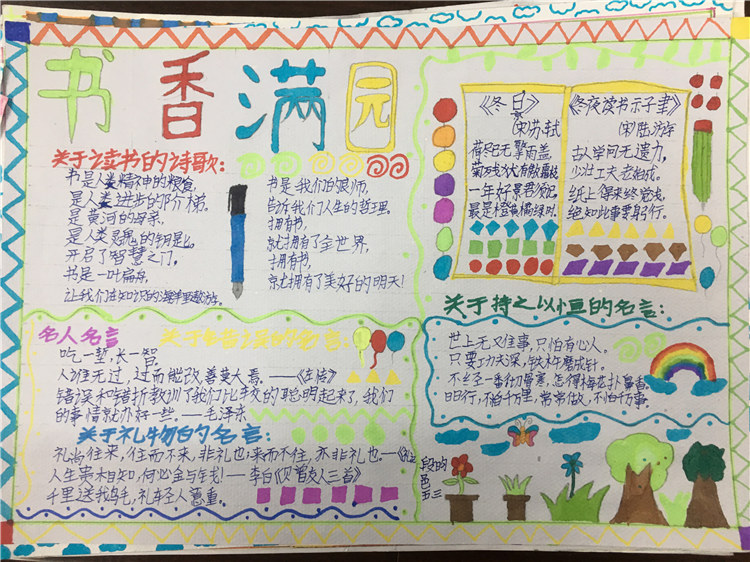 书香满园
关于读书的诗歌：
书是人类精神的粮食，
是人类进步的阶梯。
是黄河的母亲，
是人类灵魂的钥匙，
开启了智慧之门。
书是一叶扁舟，
让我们在知识的海洋里遨游。
书是我们的良师，
告诉我们人生的哲理。
拥有书，
就拥有了全世界，
拥有书，
就拥有了美好的明天！
《冬景》
(宋)苏轼
荷尽已无擎雨盖，
菊残犹有傲霜枝
一年好景君须记，
最是橙黄橘绿时。
《冬夜读书示子聿》
(宋)陆游
古人学问无遗力，
少壮工夫老始成。
纸上得来终觉浅，
绝知此事要躬行。
名人名言
吃一堑，长一智。
人谁无过，过而能改，善莫大焉。——《左传》
错误和挫折教训了我们，比较的聪明起来了，我们
的事情就办好一些。—毛泽东
关于礼物的名言：
礼尚往来，往而不来，非礼也；来而不往，亦非礼也—《礼记
人生贵相知，何必金与钱！—李白《赠友人三首》
千里送鹅毛，礼轻人意重。
关于持之以恒的名言：
世上无难事，只怕有心人。
只要功夫深，铁杵磨成针。
不经一番彻骨寒，怎得梅花扑鼻香
日日行，不怕千万里，常常做，不怕千万事。